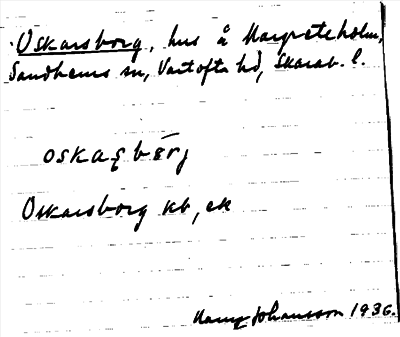 Oskarsborg, hus å Margreteholm,
Sandhems sn, Vartofta hd, Skarab. l.
oskaʂbærj
Oskarsborg kb, ek
Johansson 1936.